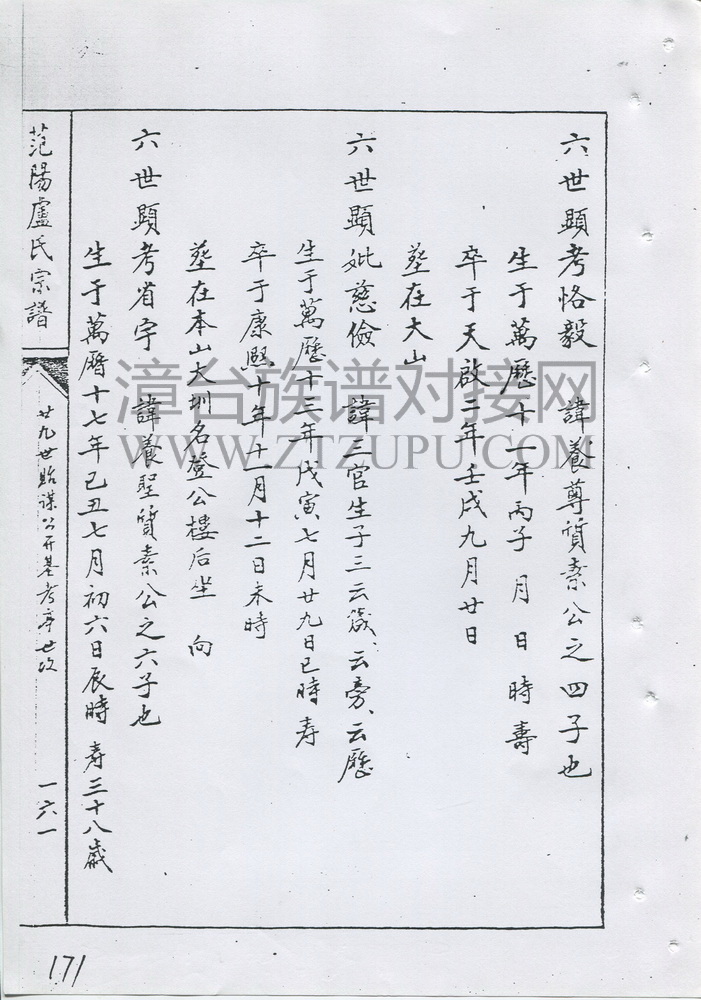 六世顯考恪毅 諱養尊質素公之四子也
生于萬歷十一年丙子 月 日 時 壽
卒于天啟二年壬戌九月廿日
塟在大山
六世顯妣慈儉 諱三官生子三云箴、云旁、云歷
生于萬歷十三年戊寅七月廿九日巳時 寿
卒于康熙十年十一月十二日未時
塟在本山大圳名登公樓后坐 向
六世顯考省宇 諱養聖質素公之六子也
生于萬曆十七年己丑七月初六日辰時 寿三十八歲
范陽盧氏宗譜
廿九世貽謀公開基考率世次
一六一
171
漳台族谱对接网
WWW.ZTZUPU.COM